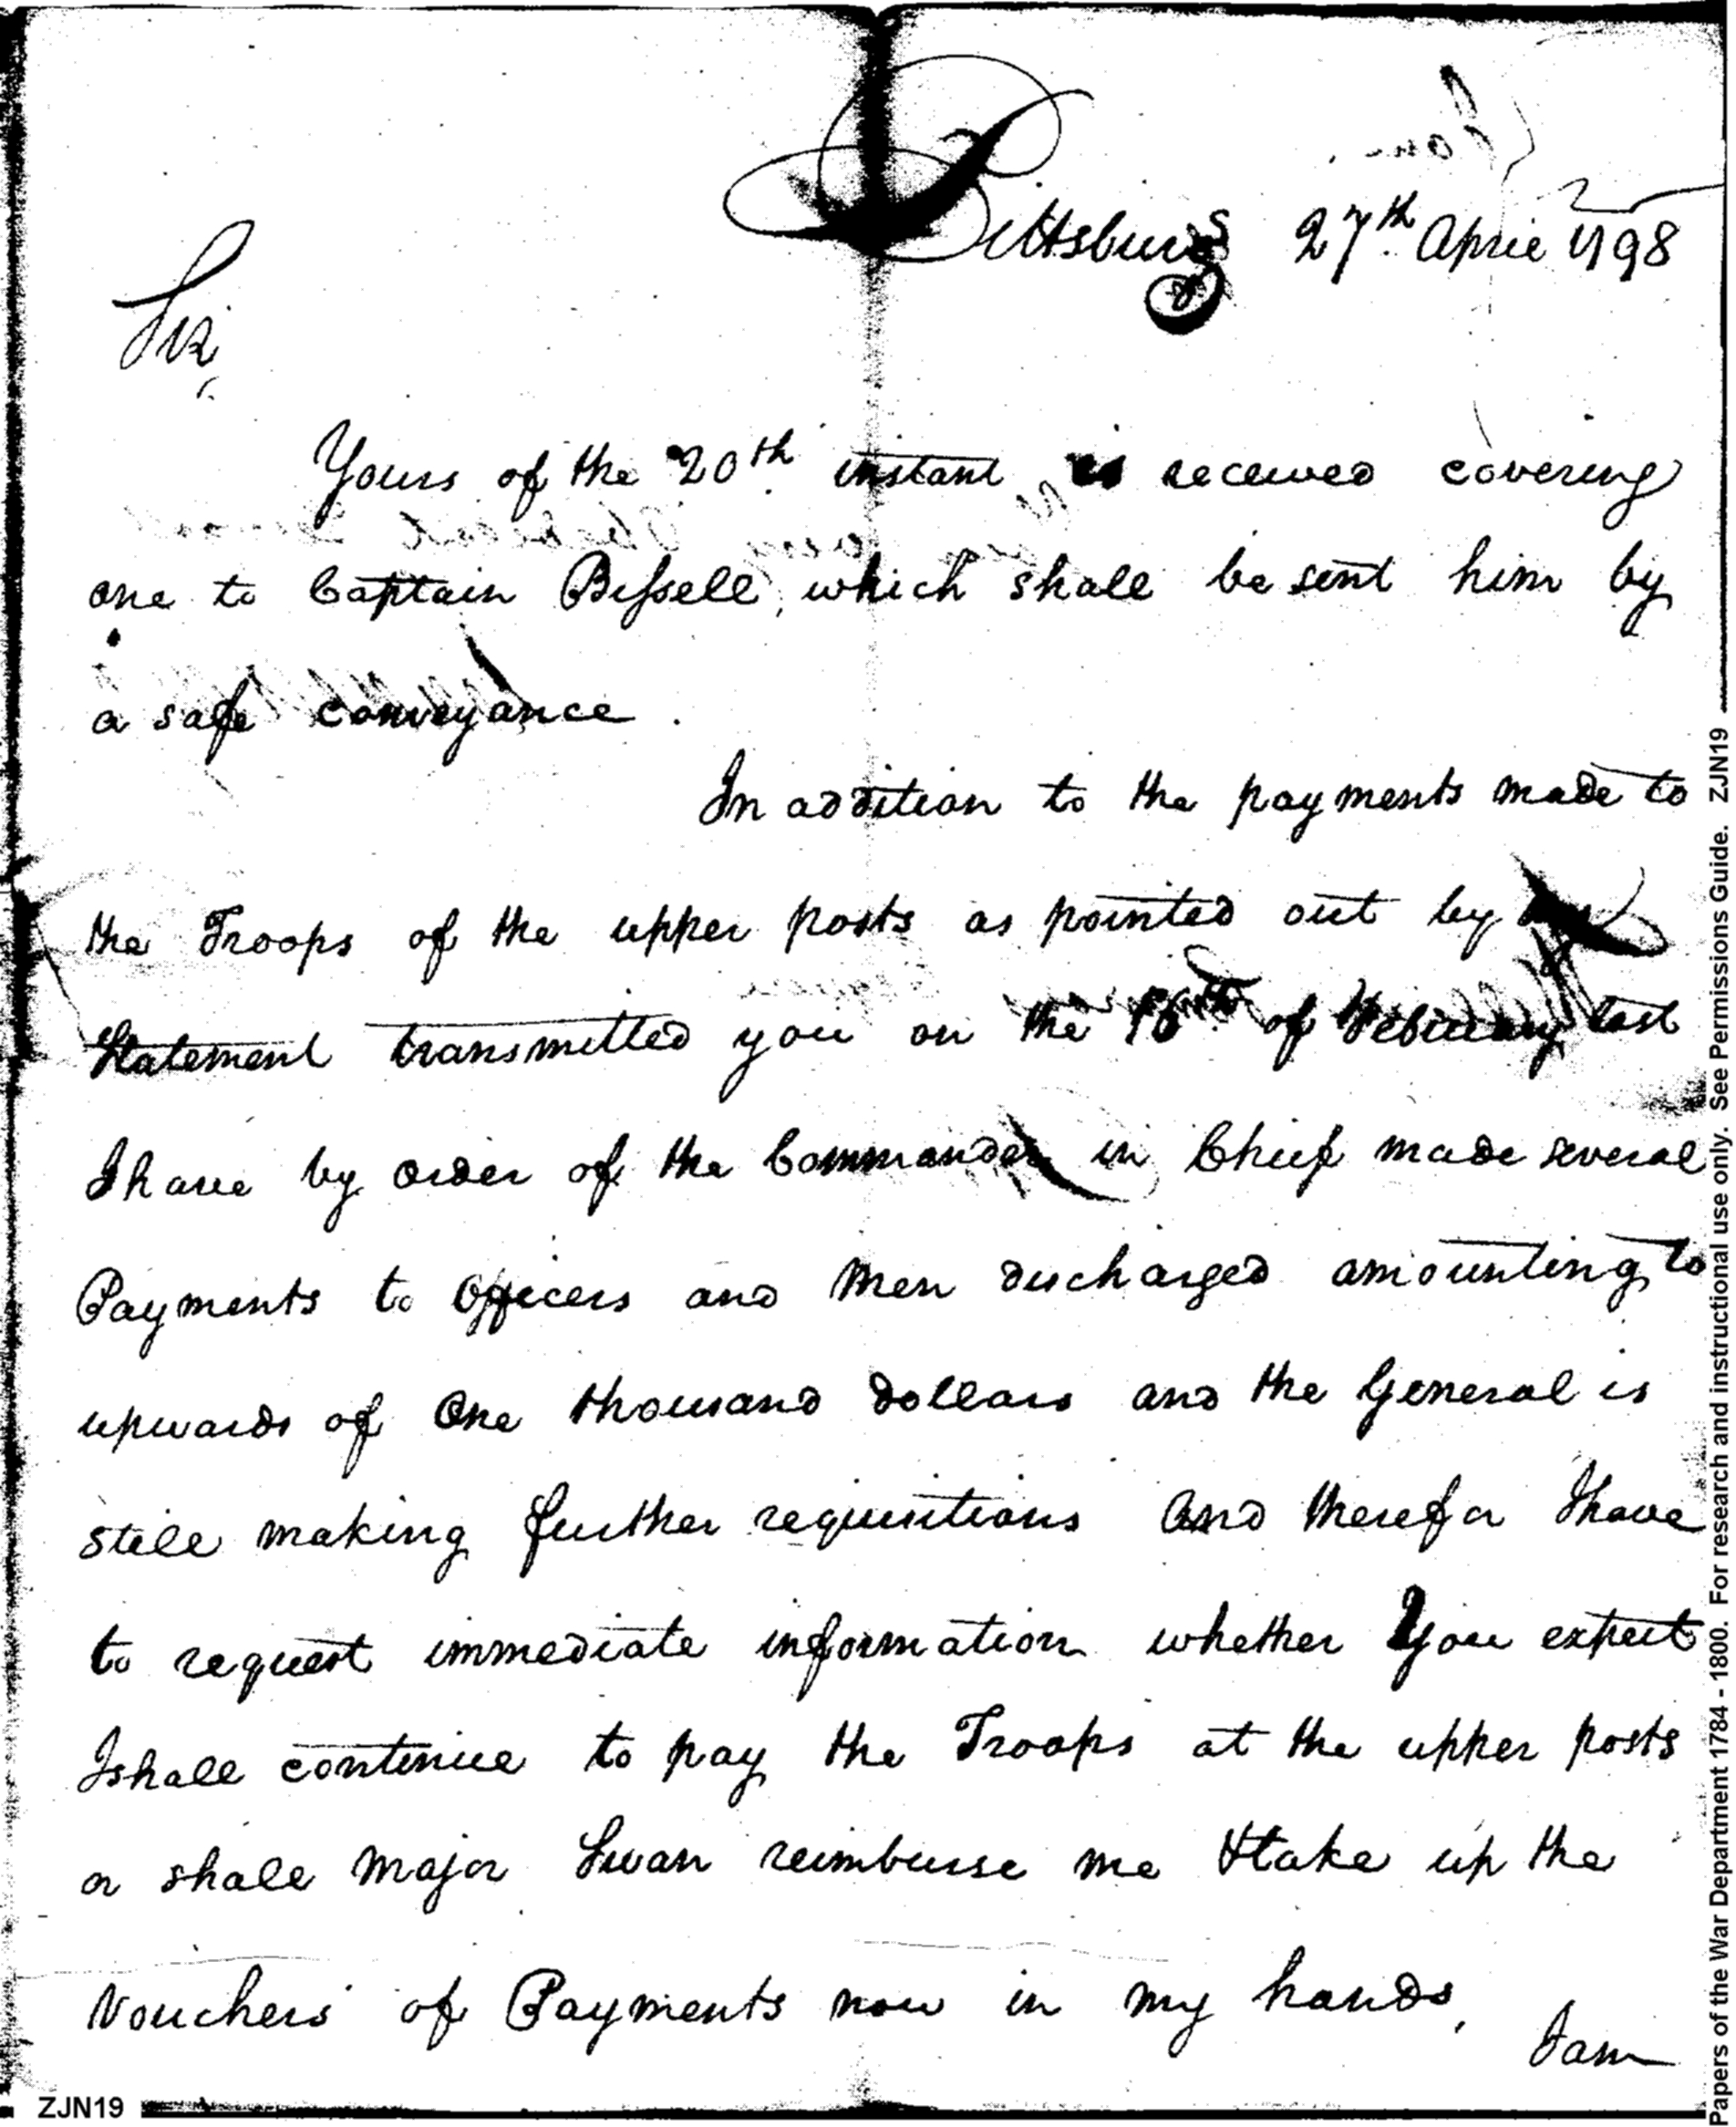 Pittsburg 27th April 1798
Sir,
Yours of the 20th instant is received covering
one to Captain Bissell, which shall be sent him by
a safe conveyance.
In addition to the payments made to
the Troops of the upper posts as pointed out by
Statement transmitted you on the 16th of February last
I have by order of the Commander in Chief made several
Payments to Officers and Men discharged amounting to
upwards of One thousand dollars and the General is
still making further requisitions and therefor I have
to request immediate information whether You expect
I shall continue to pay the Troops at the upper posts
or shall Major Swan reimburse me & take up the
Vouchers of Payments now in my hands,
I am
ZJN19
Papers of the War Department 1784 - 1800. For research and instructional use only. See Permissions Guide. ZJN19